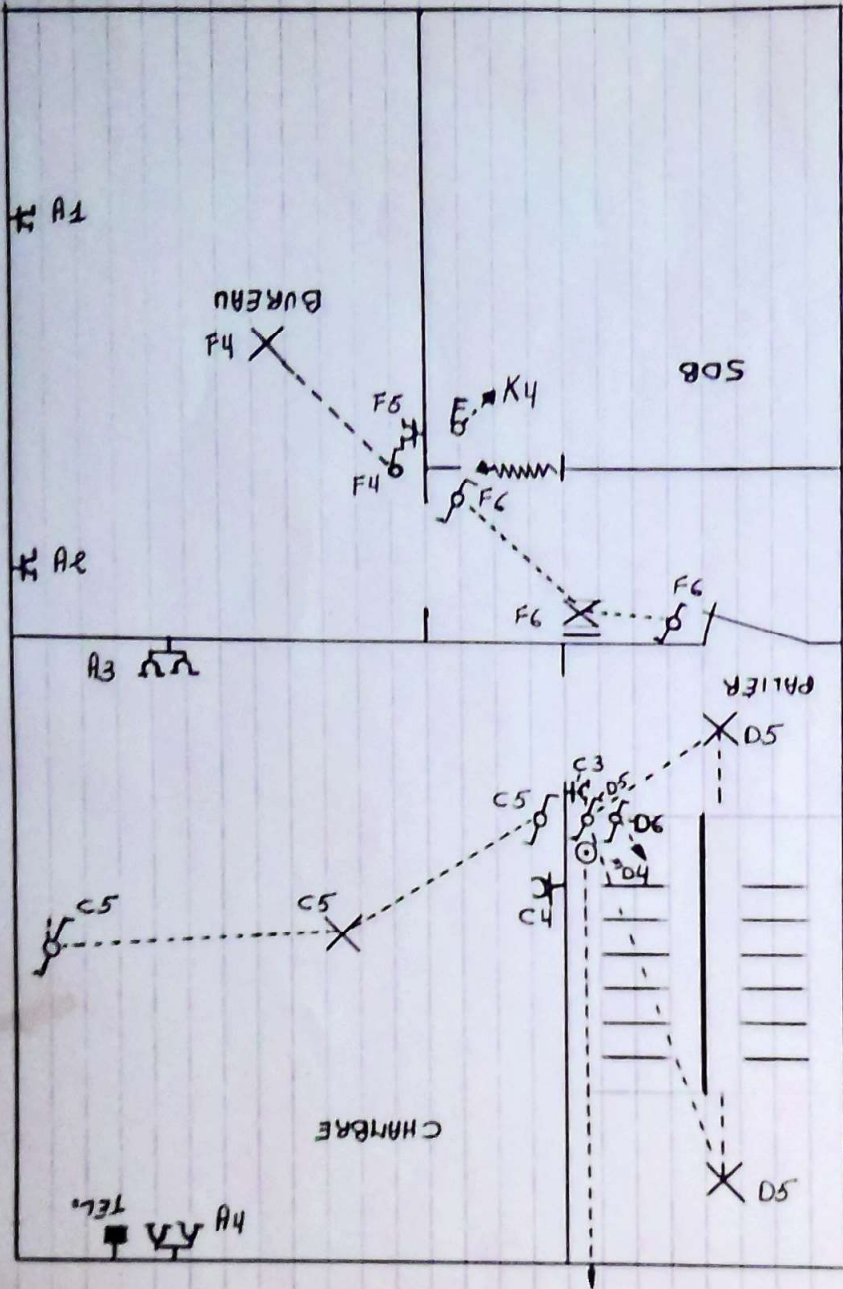 A1
BUREAU
F4
SDB
F5
K4
F4
F6
A2
F6
F6
A3
PALIER
D5
C3
C5
D5
D6
D4
C4
C5
C5
CHAMBRE
TEL.
A4
D5